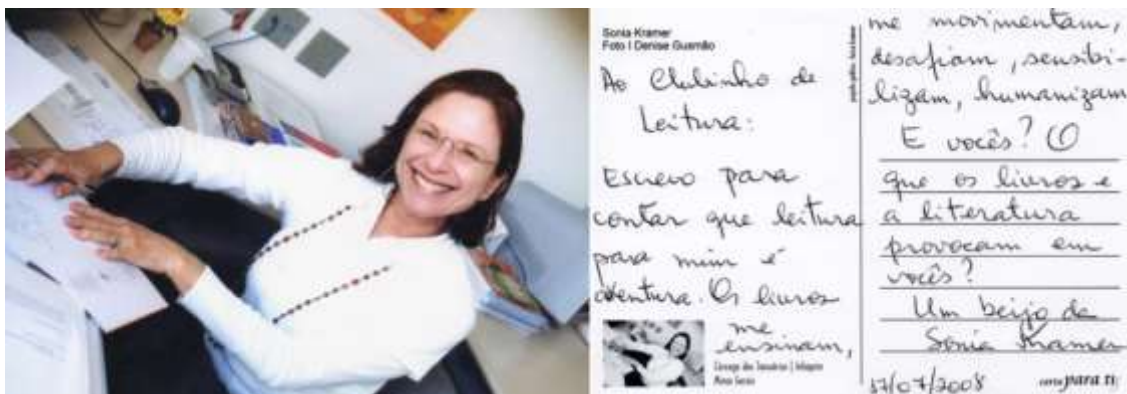 Sonia Kramer
Foto | Denise Gusmão
Ao Clubinho de
Leitura:
Escrevo para
contar que leitura
para mim é
aventura. Os livros
me
ensinam,
me movimentam,
desafiam, sensibi-
lizam, humanizam
E vocês? O
que os livros e
a literatura
provocam em
vocês?
Um beijo da
Sonia Kramer
17/07/2008
para ti